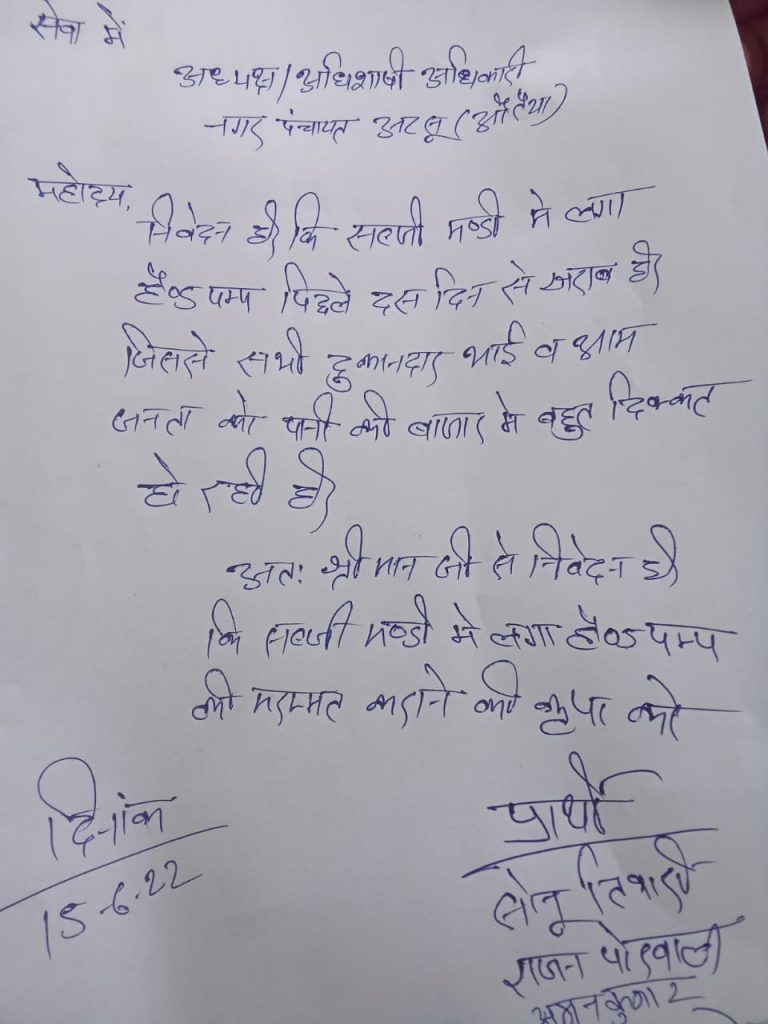 सेवा में
अध्यक्ष/अधिशाषी अधिकारी
नगर पंचायत अटसू (औरैया)
महोदय,
निवेदन है कि सब्जी मण्डी मे लगा
हैण्डपम्प पिछले दस दिन से खराब है
जिससे सभी दुकानदार भाई व आम
जनता को पानी की बाजार मे बहुत दिक्कत
हो रही है
अतः श्रीमान जी से निवेदन है
कि सब्जी मण्डी मे लगा हैण्डपम्प
की मरम्मत कराने की कृपा करे
दिनांक
15-6-22
प्रार्थी
सोनू तिवारी
राजन पोरवाल
अमन कुमार